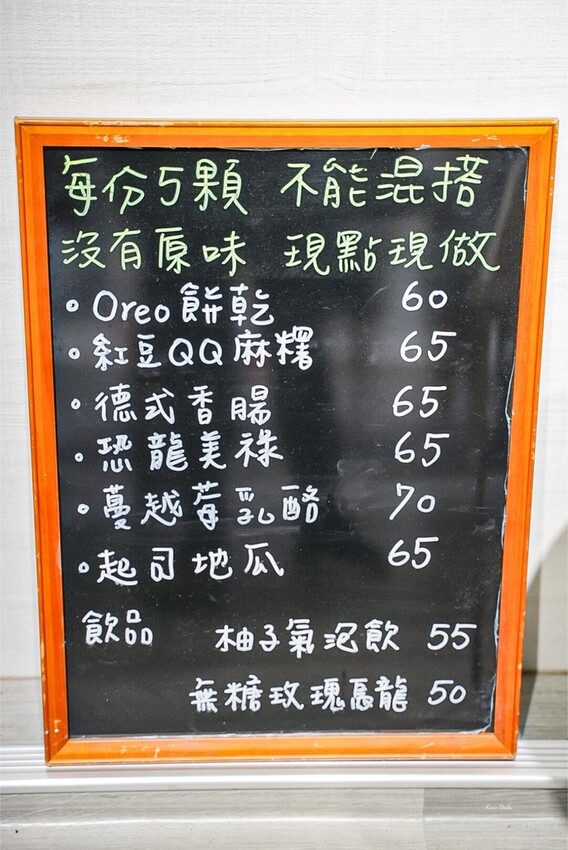 每份5顆 不能混搭
沒有原味 現點現做
• Oreo餅乾 60
• 紅豆QQ麻糬 65
• 德式香腸 65
• 恐龍美祿 65
• 蔓越莓乳酪 70
• 起司地瓜 65
飲品 柚子氣泡飲 55
無糖玫瑰烏龍 50